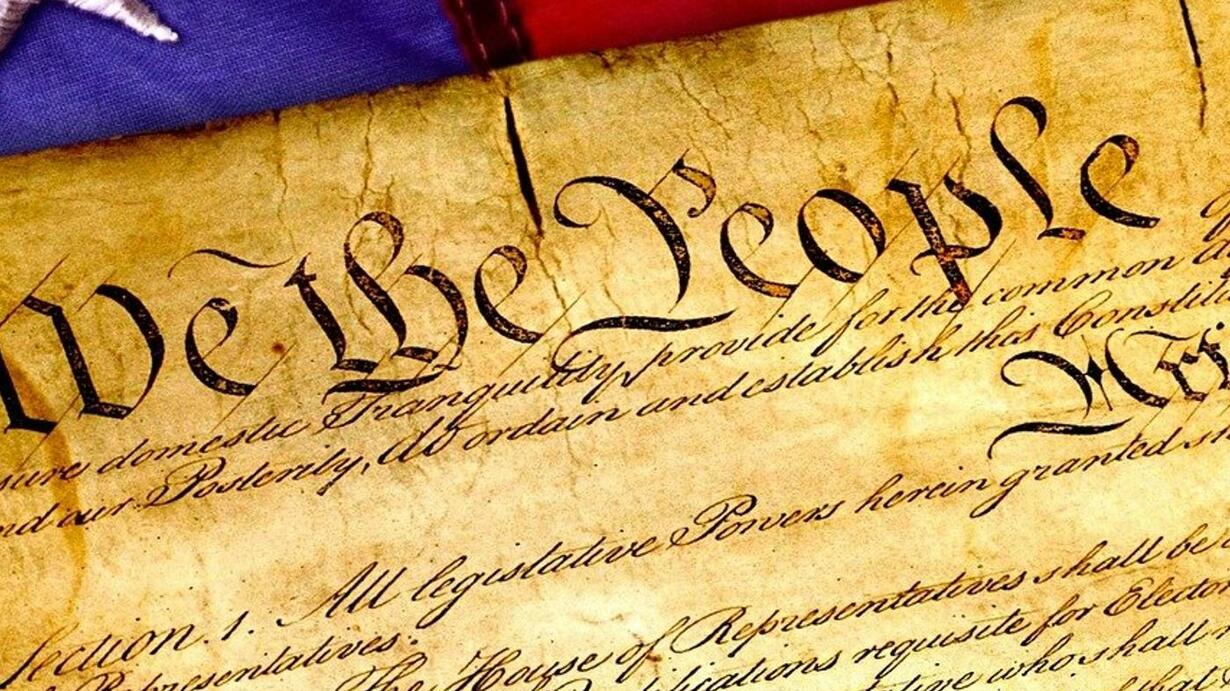 We the People
sure domestic Tranquility, provide for the common
nd our Posterity, do ordain and establish this Constitu
Section. 1. All legislative Powers herein granted sh
Representatives.
The House of Representatives shall be
ications requisite for Elector
tive who shall
that